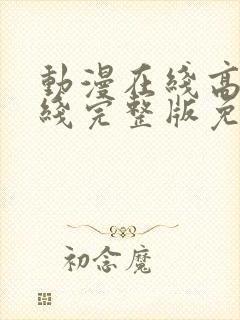 動漫在綫高
綫完整版免
初念魔